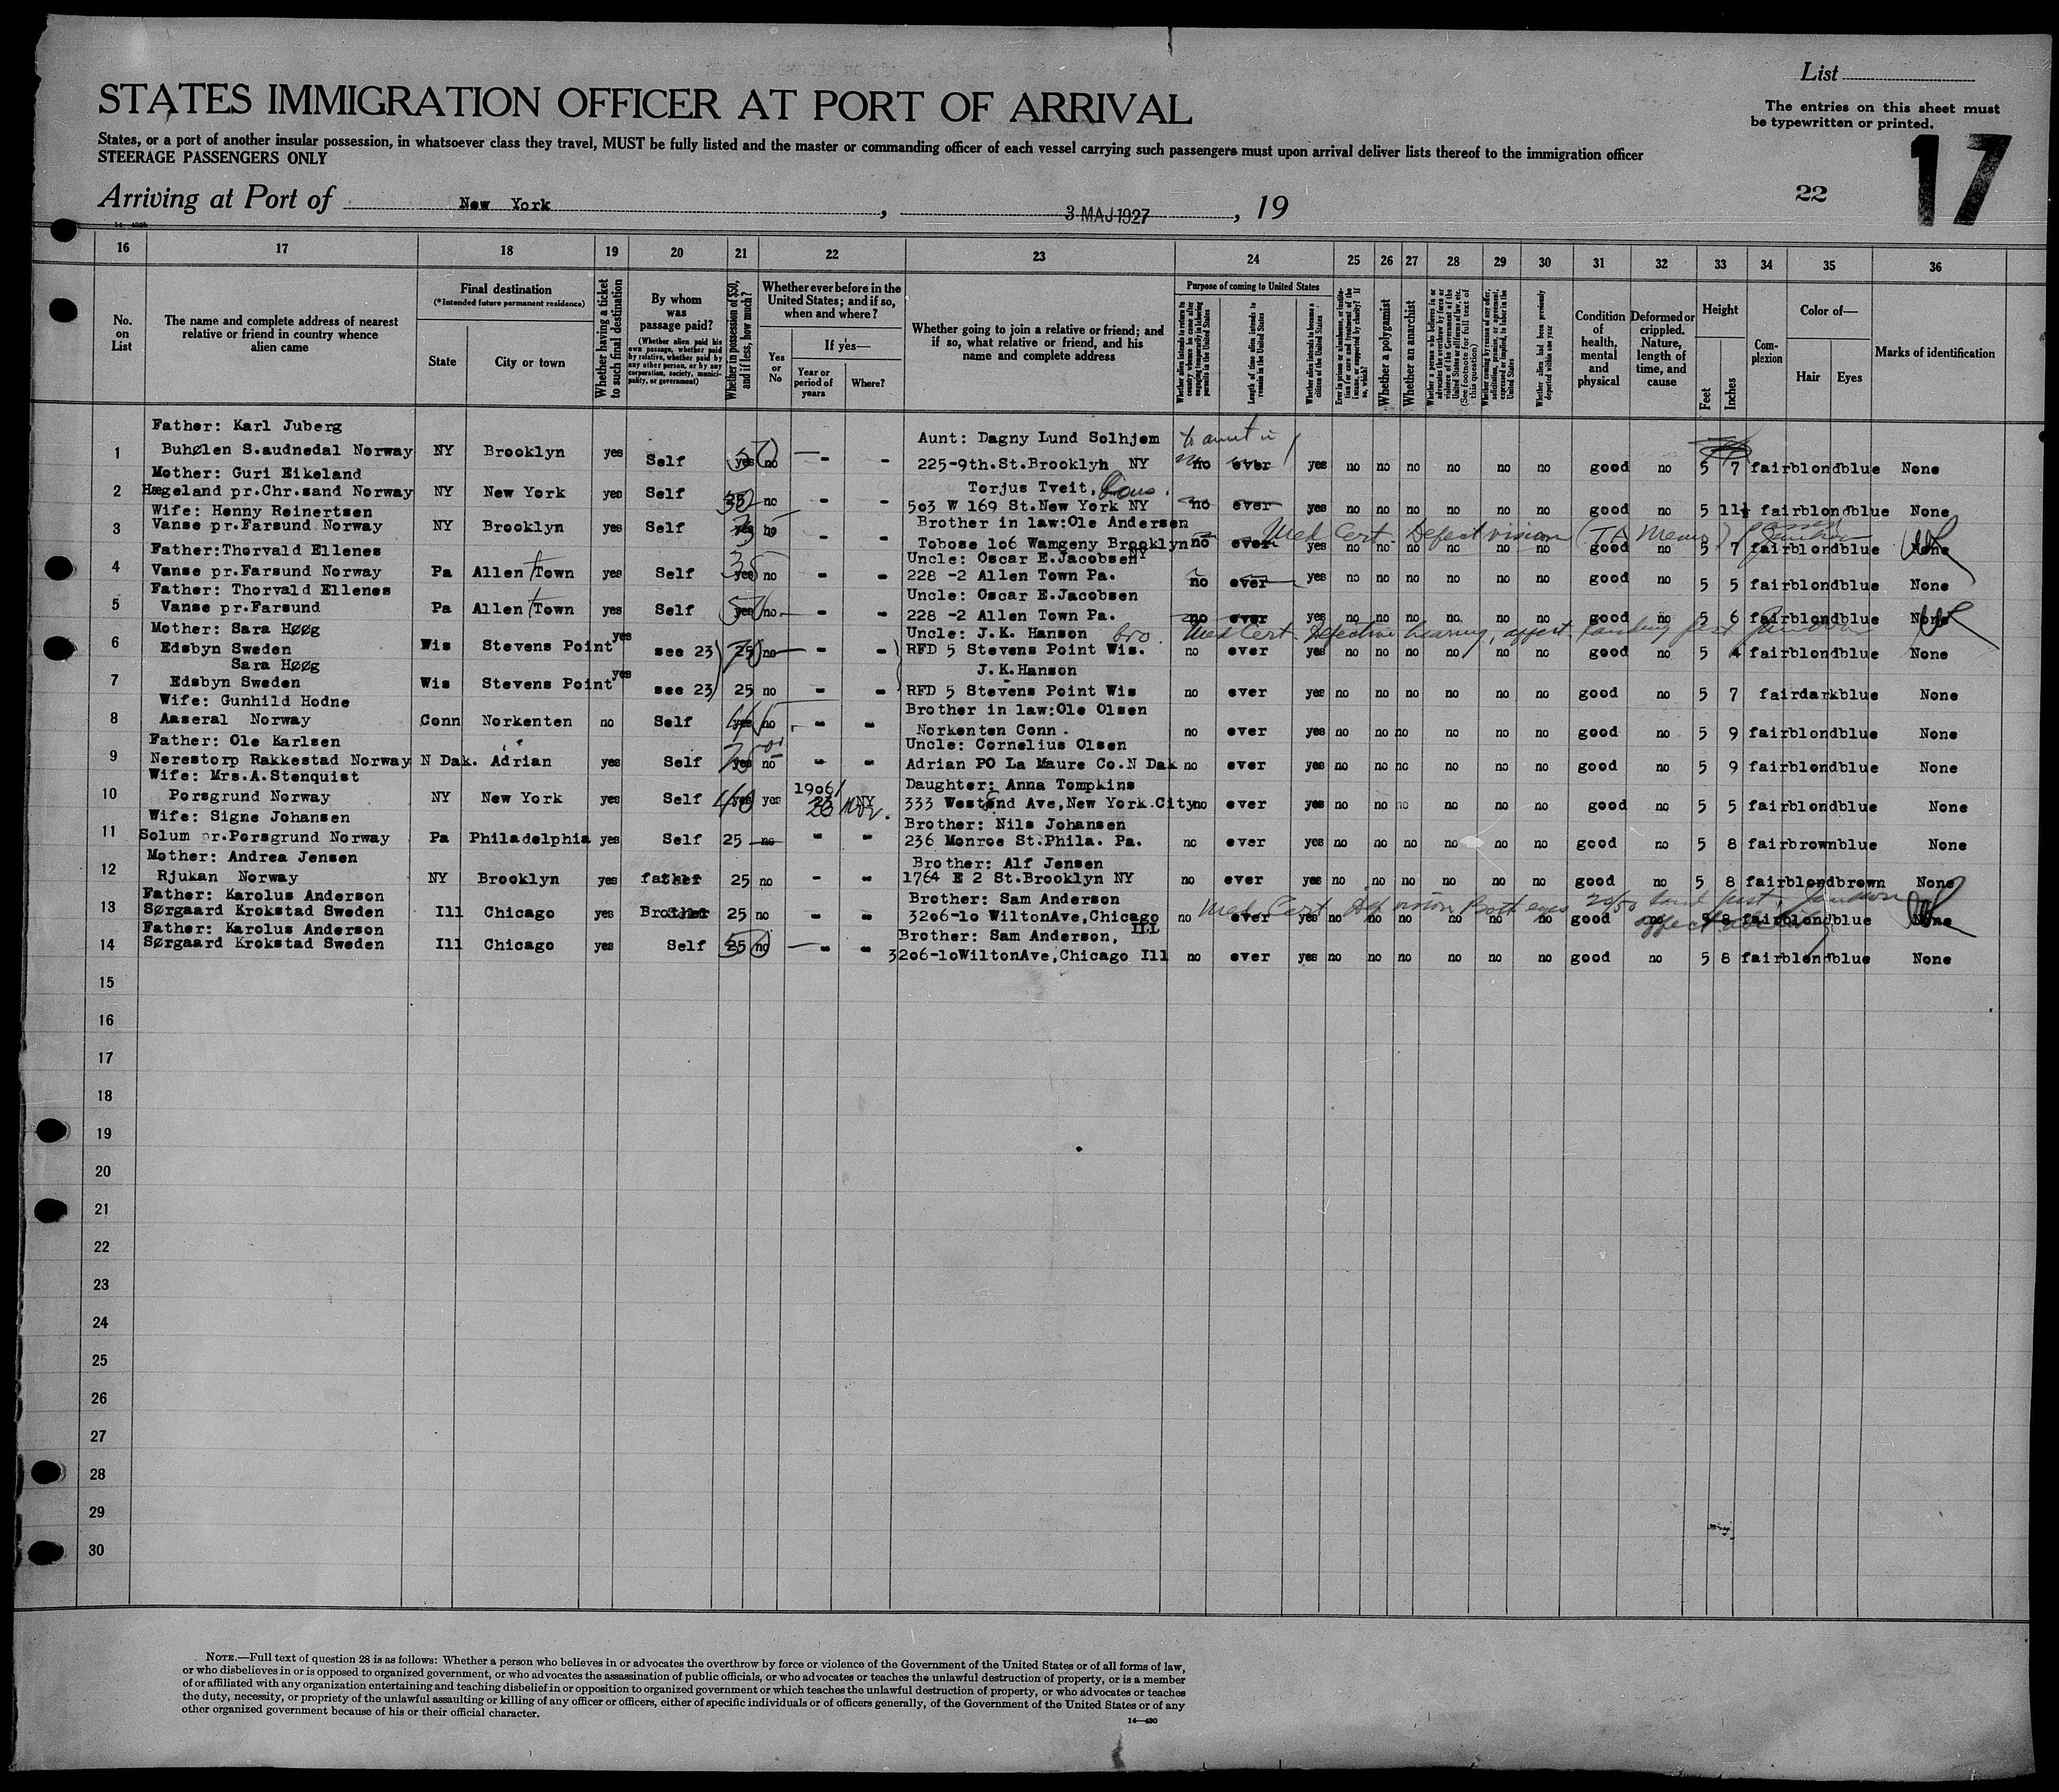 List
STATES IMMIGRATION OFFICER AT PORT OF ARRIVAL
The entries on this sheet must
be typewritten or printed.
States, or a port of another insular possession, in whatsoever class they travel, MUST be fully listed and the master or commanding officer of each vessel carrying such passengers must upon arrival deliver lists thereof to the immigration officer
STEERAGE PASSENGERS ONLY
17
22
Arriving at Port of New York, 3 MAJ 1927, 19
16 17 18 19 20 21 22 23 24 25 26 27 28 29 30 31 32 33 34 35 36
No. on List
The name and complete address of nearest relative or friend in country whence alien came
Final destination
(*Intended future permanent residence)
State
City or town
Whether having a ticket to such final destination
By whom was passage paid?
(Whether alien paid his own passage, whether paid by relative, whether paid by any other person, or by any corporation, society, municipality, or government)
Whether in possession of $50, and if less, how much?
Whether ever before in the United States; and if so, when and where?
Yes or No
If yes—
Year or period of years
Where?
Whether going to join a relative or friend; and if so, what relative or friend, and his name and complete address
Purpose of coming to United States
Whether alien intends to return to country whence he came after engaging temporarily in laboring pursuits in the United States
Length of time alien intends to remain in the United States
Whether alien intends to become a citizen of the United States
Ever in prison or almshouse, or institution for care and treatment of the insane, or supported by charity? If so, which?
Whether a polygamist
Whether an anarchist
Whether a person who believes in or advocates the overthrow by force or violence of the Government of the United States or all forms of law, etc. (See footnote for full text of this question)
Whether coming by reason of any offer, solicitation, promise, or agreement, expressed or implied, to labor in the United States
Whether alien had been previously deported within one year
Condition of health, mental and physical
Deformed or crippled. Nature, length of time, and cause
Height
Feet
Inches
Complexion
Color of—
Hair
Eyes
Marks of identification
Father: Karl Juberg
1 Buhølen S.audnedal Norway NY Brooklyn yes Self yes 50 no - - Aunt: Dagny Lund Solhjem
225-9th.St.Brooklyn NY no ever yes no no no no no no good no 5 7 fair blond blue None
Mother: Guri Eikeland
2 Hægeland pr.Chr.sand Norway NY New York yes Self no - - Torjus Tveit. Cous.
503 W 169 St.New York NY no ever yes no no no no no no good no 5 11½ fair blond blue None
Wife: Henny Reinertsen
3 Vanse pr.Farsund Norway NY Brooklyn yes Self yes no - - Brother in law:Ole Andersen
Tobose 106 Wamgeny Brooklyn NY no ever yes no no no no no no good no 5 7 fair blond blue None
Med Cert. Defect vision
Father:Thorvald Ellenes
4 Vanse pr.Farsund Norway Pa Allen Town yes Self yes 35 no - - Uncle: Oscar E.Jacobsen
228 -2 Allen Town Pa. no ever yes no no no no no no good no 5 5 fair blond blue None
Father: Thorvald Ellenes
5 Vanse pr.Farsund Pa Allen Town yes Self yes 50 no - - Uncle: Oscar E.Jacobsen
228 -2 Allen Town Pa. no ever yes no no no no no no good no 5 6 fair blond blue None
Mother: Sara Høøg
6 Edsbyn Sweden Wis Stevens Point yes see 23 25 no - - Uncle: J.K. Hanson bro.
RFD 5 Stevens Point Wis. no ever yes no no no no no no good no 5 4 fair blond blue None
Med Cert. Defective hearing,
Sara Høøg
7 Edsbyn Sweden Wis Stevens Point yes see 23 25 no - - J.K.Hanson
RFD 5 Stevens Point Wis no ever yes no no no no no no good no 5 7 fair dark blue None
Wife: Gunhild Hodne
8 Aaseral Norway Conn Norkenten no Self yes no - - Brother in law:Ole Olsen
Norkenten Conn. no ever yes no no no no no no good no 5 9 fair blond blue None
Father: Ole Karlsen
9 Nerestorp Rakkestad Norway N Dak. Adrian yes Self yes no - - Uncle: Cornelius Olsen
Adrian PO La Maure Co.N Dak no ever yes no no no no no no good no 5 9 fair blond blue None
Wife: Mrs.A.Stenquist
10 Porsgrund Norway NY New York yes Self yes yes 1906/ 23 NY Daughter: Anna Tompkins
333 Westend Ave,New York.City no ever yes no no no no no no good no 5 5 fair blond blue None
Wife: Signe Johansen
11 Solum pr.Porsgrund Norway Pa Philadelphia yes Self 25 no - - Brother: Nils Johansen
236 Monroe St.Phila. Pa. no ever yes no no no no no no good no 5 8 fair brown blue None
Mother: Andrea Jensen
12 Rjukan Norway NY Brooklyn yes father 25 no - - Brother: Alf Jensen
1764 E 2 St.Brooklyn NY no ever yes no no no no no no good no 5 8 fair blond brown None
Father: Karolus Anderson
13 Sørgaard Krokstad Sweden Ill Chicago yes Brother 25 no - - Brother: Sam Anderson
3206-10 WiltonAve,Chicago ILL no ever yes no no no no no no good no 5 8 fair blond blue None
Med Cert. Def vision Both eyes 20/50
Father: Karolus Anderson
14 Sørgaard Krokstad Sweden Ill Chicago yes Self 25 50 no - - Brother: Sam Anderson,
3206-10WiltonAve,Chicago Ill no ever yes no no no no no no good no 5 8 fair blond blue None
15
16
17
18
19
20
21
22
23
24
25
26
27
28
29
30
NOTE.—Full text of question 28 is as follows: Whether a person who believes in or advocates the overthrow by force or violence of the Government of the United States or of all forms of law,
or who disbelieves in or is opposed to organized government, or who advocates the assassination of public officials, or who advocates or teaches the unlawful destruction of property, or is a member
of or affiliated with any organization entertaining and teaching disbelief in or opposition to organized government or which teaches the unlawful destruction of property, or who advocates or teaches
the duty, necessity, or propriety of the unlawful assaulting or killing of any officer or officers, either of specific individuals or of officers generally, of the Government of the United States or of any
other organized government because of his or their official character.
14—430